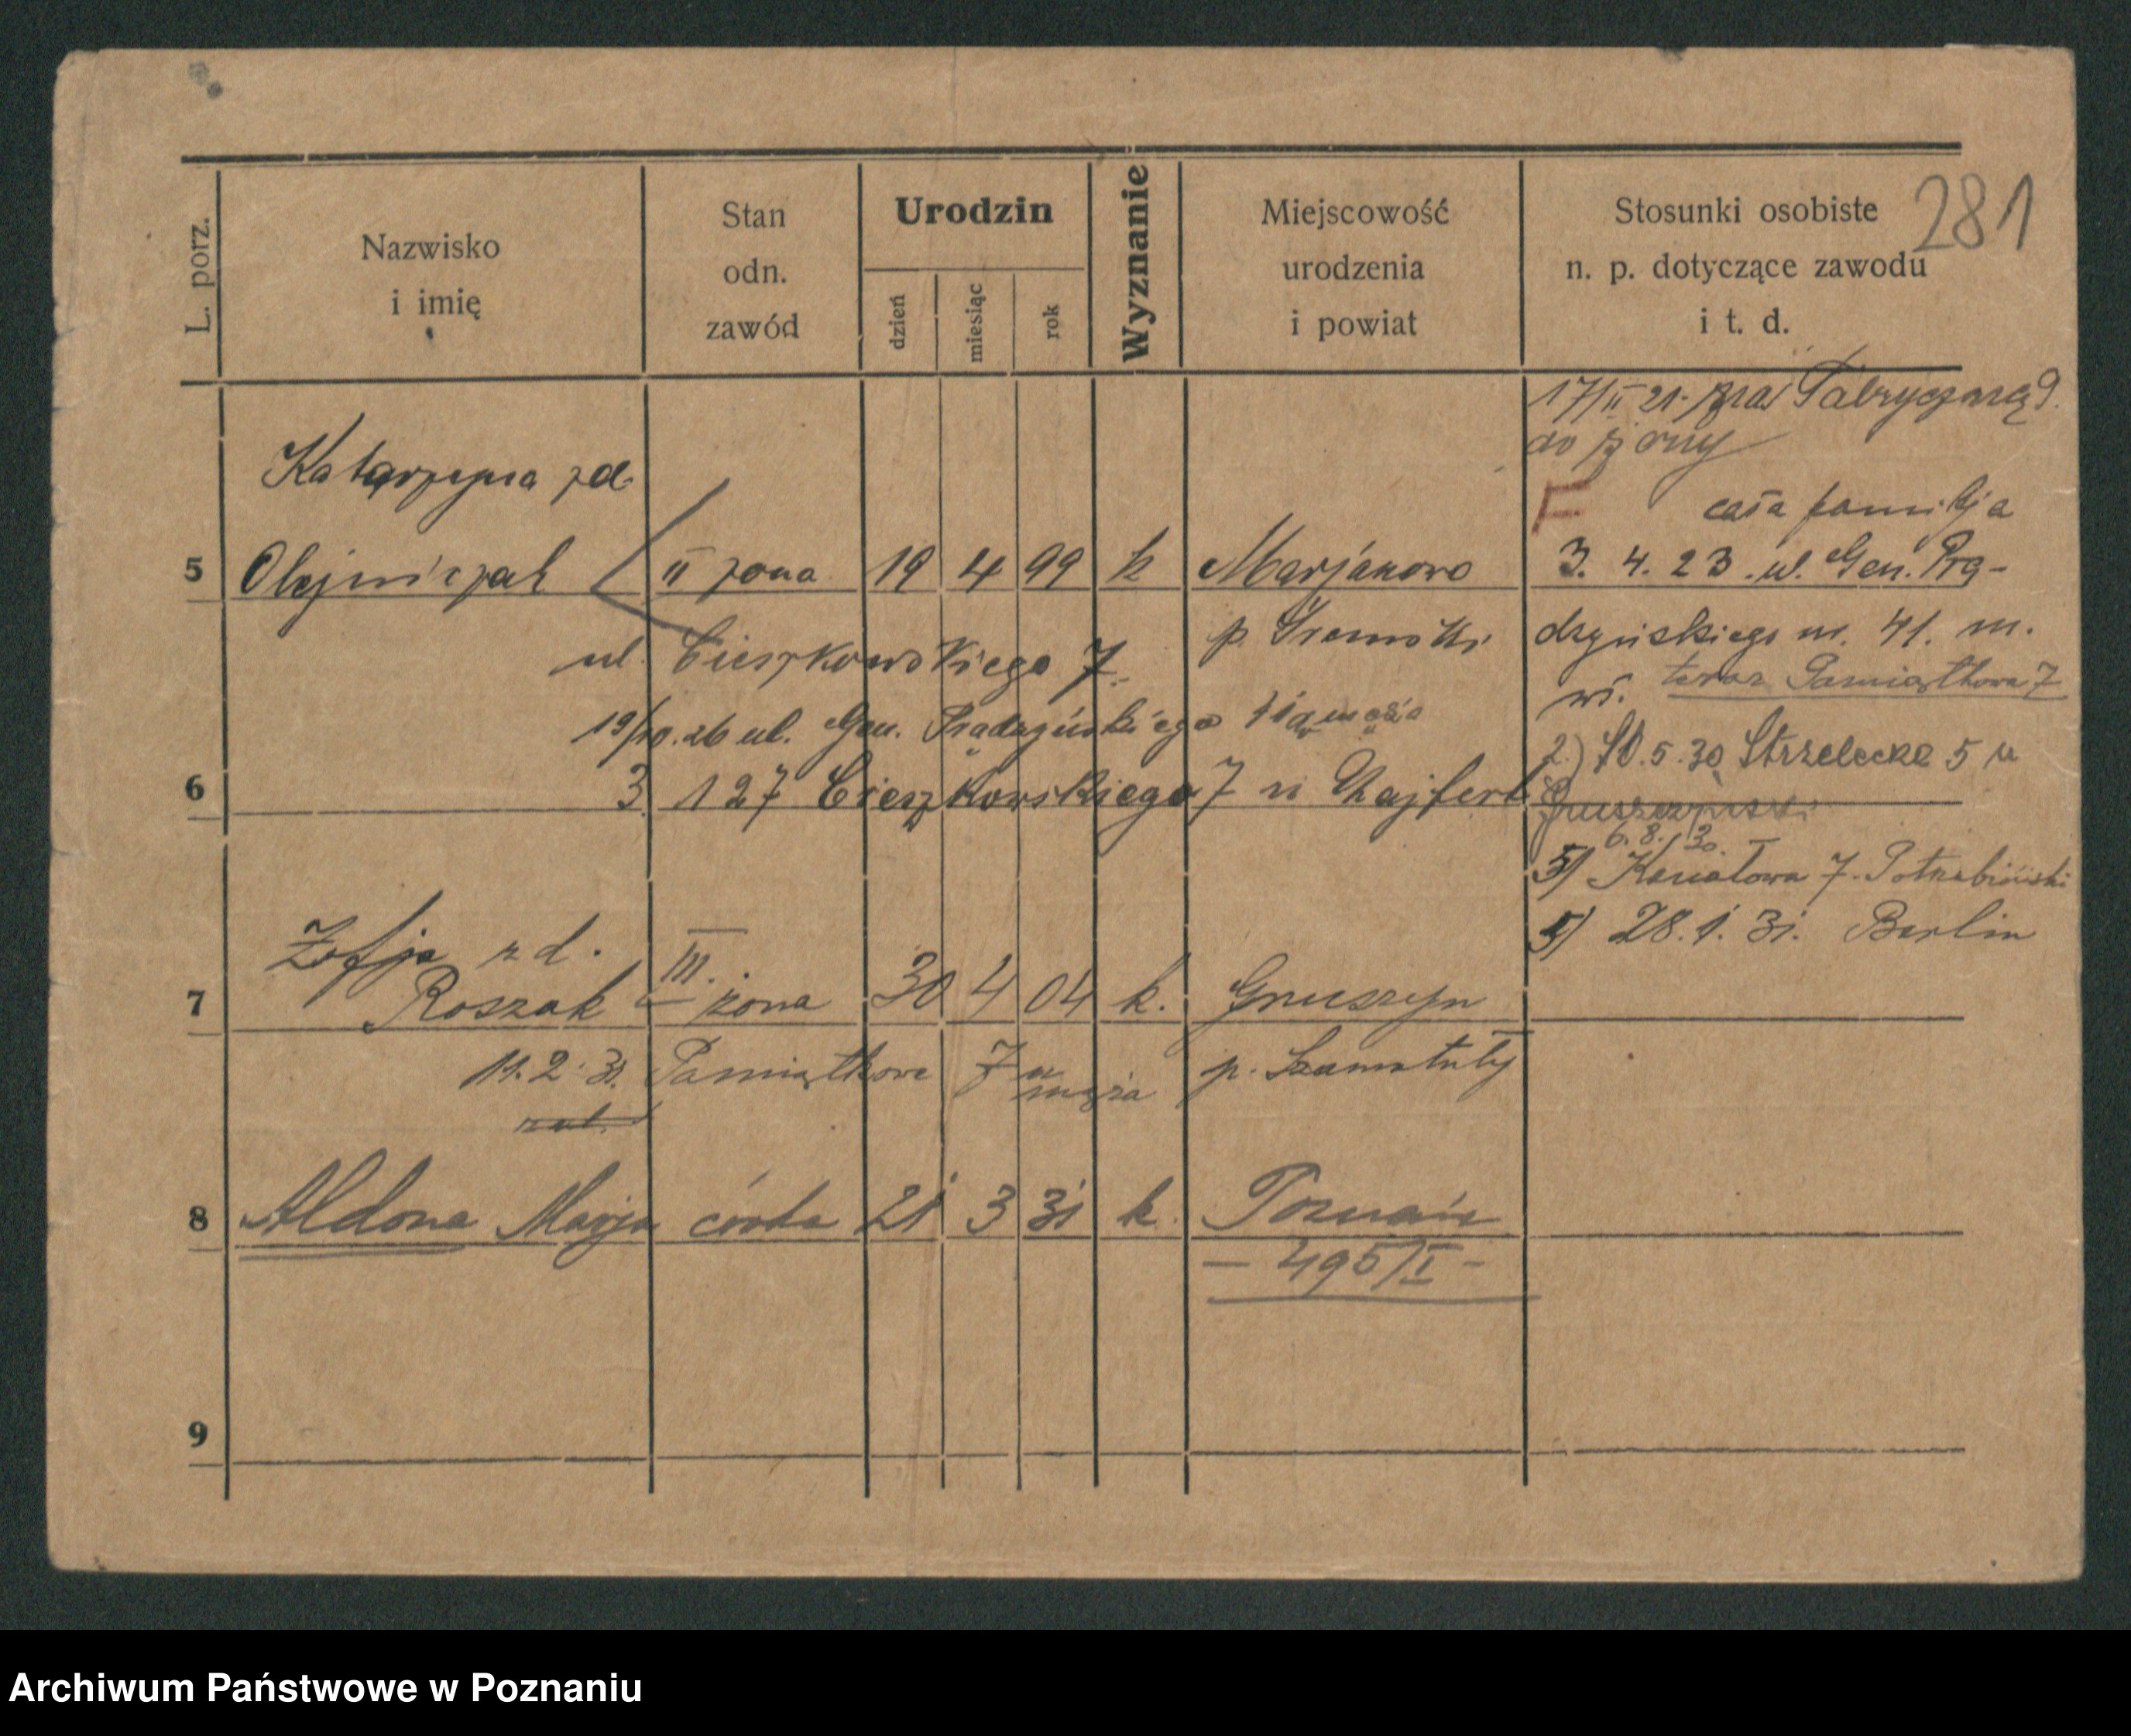 281
L. porz.
Nazwisko
i imię
Stan
odn.
zawód
Urodzin
dzień
miesiąc
rok
Wyznanie
Miejscowość
urodzenia
i powiat
Stosunki osobiste
n. p. dotyczące zawodu
i t. d.
17/II 21. Fabryczna 9.
do żony
Katarzyna zd.
cała familja
5 Olejniczak II żona 19 4 99 k Marjanowo 3. 4. 23. ul. Gen. Prą-
p. Śremski dzyńskiego nr. 41. m.
ul. Cieszkowskiego 7.
wł. teraz Pamiątkowa 7
19/10. 26 ul. Gen. Prądzyńskiego 41a męża
2.) 10. 5. 30 Strzelecka 5 u
6 3 1 27 Cieszkowskiego 7 u Chajfert
6. 8. 30.
3) Kanałowa 7.
28. 1. 31. Berlin
Zofja zd.
7 Roszak III. żona 30 4 04 k. Gruszczyn
11. 2. 31. Pamiątkowa 7 u męża p. Szamotuły
8 Aldona Marja córka 21 3 31 k. Poznań
— 495/I —
9
Archiwum Państwowe w Poznaniu